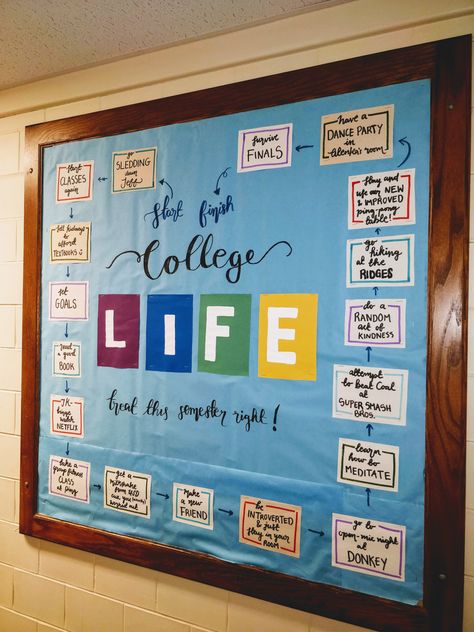 start
go
SLEDDING
down
Jeff
start
CLASSES
again
sell kidneys
to afford
TEXTBOOKS
set
GOALS
read
a good
BOOK
JK-
binge watch
NETFLIX
take a
group fitness
CLASS
at Ping
get a
milkshake
from
cuz you
worked out
make a
new
FRIEND
be
INTROVERTED
& just
stay in your
ROOM
go to
open-mic night
at
DONKEY
learn
how to
MEDITATE
attempt
to beat Coal at
SUPER SMASH
BROS.
do a
RANDOM
act of
KINDNESS
go
HIKING
at the
RIDGES
stay and
use our NEW
& IMPROVED
ping-pong
table!
have a
DANCE PARTY
in
room
survive
FINALS
finish
College
LIFE
treat this semester right!